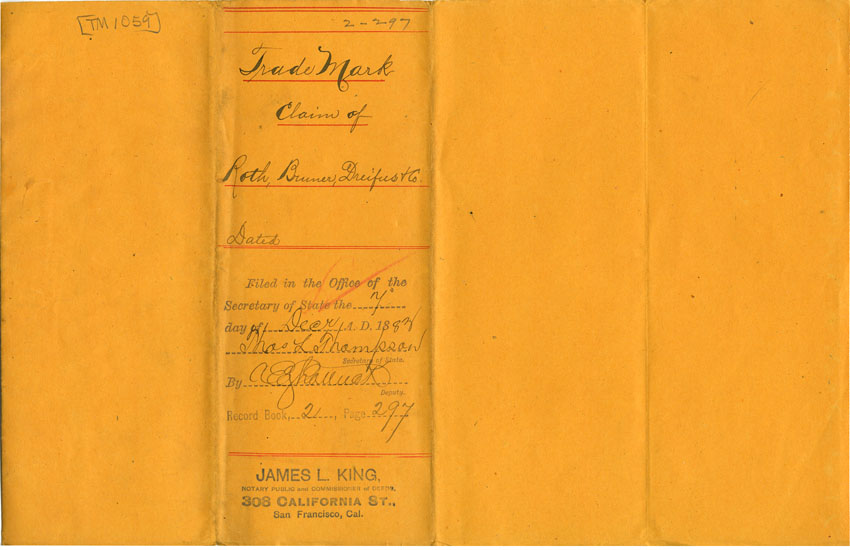 [TM1059]
2-297
Trade Mark
Claim of
Roth, Bruner, Dreifus & Co.
Dated
Filed in the Office of the
Secretary of State the 7"
day of Decr, A. D. 188
Thos L Thompson
Secretary of State.
By
Deputy.
Record Book, 2, Page 297
JAMES L. KING,
NOTARY PUBLIC and COMMISSIONER of DEEDS,
308 CALIFORNIA ST.,
San Francisco, Cal.